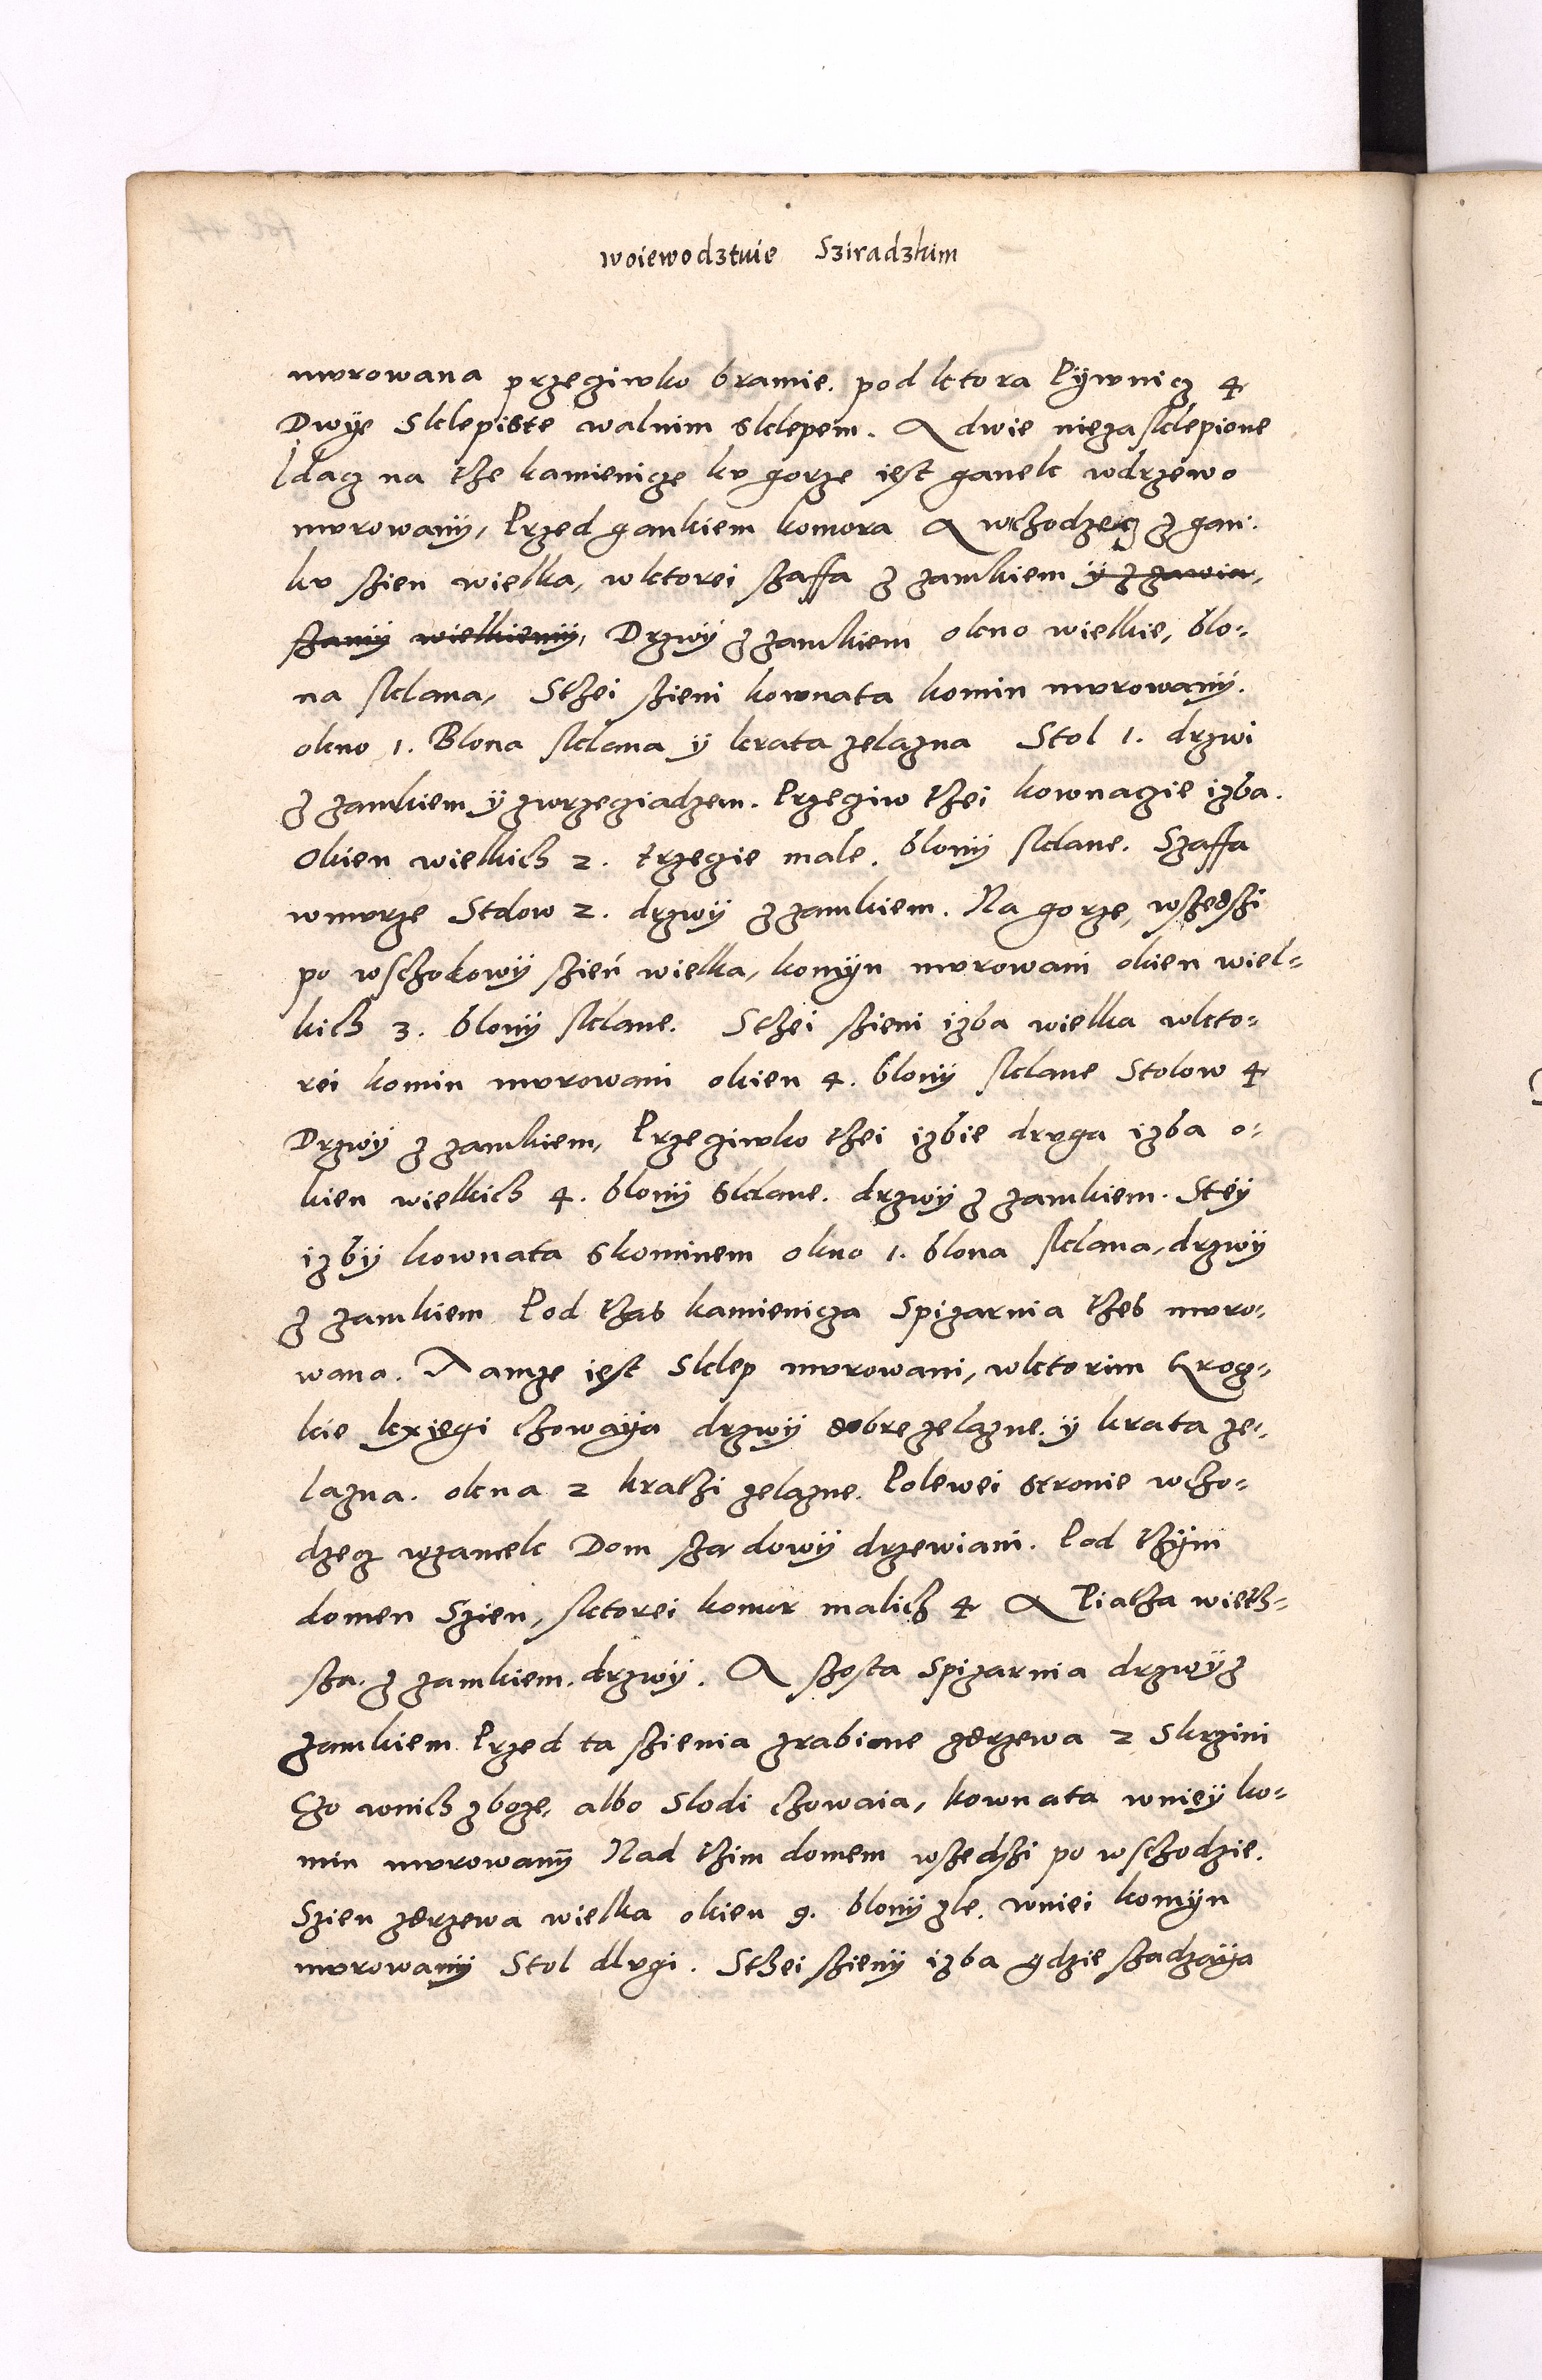 woiewodztwie Sziradzkim
murowana przeciwko bramie. pod ktora Pÿwnicz 4
Dwÿe Sklepiste walnim sklepem. A dwie niezasklepione
Idacz na the kamienicze ku gorze iest ganek wdrzewo
murowanÿ, Przed gankiem komora A wchodzecz z gan:
ku szien wielka, wktorei szaffa z zamkiem ÿ z zawia,
szamÿ wielkiemÿ, Drzwÿ z zamkiem okno wielkie, blo:
na sklana, Sthei szieni kownata komin murowanÿ.
okno 1. Blona sklana ÿ krata zelazna Stol 1. drzwi
z zamkiem ÿ zwrzeciadzem. Przeciw thei kownacie izba.
Okien wielkich 2. trzecie male. blonÿ sklane. Szaffa
wmurze Stolow 2. drzwÿ z zamkiem. Na gorze, wszedszi
po wschodowÿ szień wielka, komÿn murowani okien wiel=
kich 3. blonÿ sklane. Sthei szieni izba wielka wkto=
rei komin murowani okien 4. blonÿ sklane Stolow 4
Drzwÿ z zamkiem, Przeciwko thei izbie druga izba o=
kien wielkich 4. blonÿ sklane. drzwÿ z zamkiem. Stéÿ
izbÿ kownata skominem okno 1. blona sklana, drzwÿ
z zamkiem Pod thas kamienicza Spizarnia thes muro,
wana. Tamze iest Sklep murowani, wktorim Grocz=
kie kxięgi chowaÿa drzwÿ dobre zelazne. ÿ krata ze,
lazna. okna 2 krathi zelazne. Polewei stronie wcho=
dzecz wzamek Dom szadowÿ drzewiani. Pod thÿm
domen Szien, sktorei komor malich 4 A Piatha wieth=
sza. z zamkiem. drzwÿ. A szosta Spizarnia drzwÿ z
zamkiem Przed ta szienia zrabione zdrzewa 2 Skrzini
Czo wnich zboze, albo Slodi chowaia, kownata wnieÿ ko=
min murowanÿ Nad thim domem wszedszi po wschodzie.
Szien zdrzewa wielka okien 9. blonÿ zle. wniei komÿn
murowanÿ Stol dlugi. Sthei szienÿ izba gdzie szadzaÿa